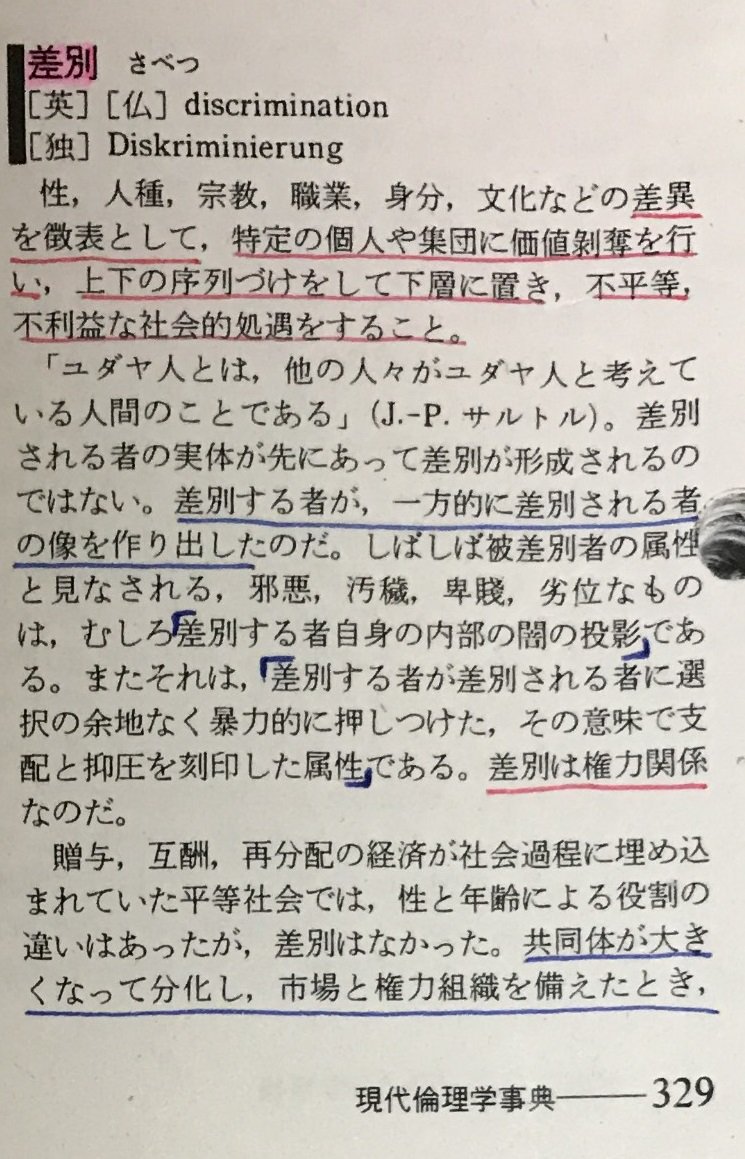 差別 さべつ
[英][仏] discrimination
[独] Diskriminierung
性，人種，宗教，職業，身分，文化などの差異
を徴表として，特定の個人や集団に価値剝奪を行
い，上下の序列づけをして下層に置き，不平等，
不利益な社会的処遇をすること。
「ユダヤ人とは，他の人々がユダヤ人と考えて
いる人間のことである」(J.-P. サルトル)。差別
される者の実体が先にあって差別が形成されるの
ではない。差別する者が，一方的に差別される者
の像を作り出したのだ。しばしば被差別者の属性
と見なされる，邪悪，汚穢，卑賤，劣位なもの
は，むしろ「差別する者自身の内部の闇の投影」であ
る。またそれは，「差別する者が差別される者に選
択の余地なく暴力的に押しつけた，その意味で支
配と抑圧を刻印した属性」である。差別は権力関係
なのだ。
贈与，互酬，再分配の経済が社会過程に埋め込
まれていた平等社会では，性と年齢による役割の
違いはあったが，差別はなかった。共同体が大き
くなって分化し，市場と権力組織を備えたとき，
現代倫理学事典——329